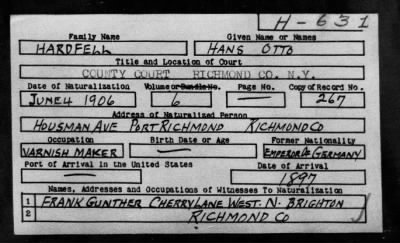 H-631
Family Name Given Name or Names
HARDFELL HANS OTTO
Title and Location of Court
COUNTY COURT RICHMOND CO. N.Y.
Date of Naturalization Volume or Bundle No. Page No. Copy of Record No.
JUNE 4 1906 6 — 267
Address of Naturalized Person
HOUSMAN AVE PORT RICHMOND RICHMOND CO
Occupation Birth Date or Age Former Nationality
VARNISH MAKER — EMPEROR OF GERMANY
Port of Arrival in the United States Date of Arrival
— 1897
Names, Addresses and Occupations of Witnesses To Naturalization
1 FRANK GUNTHER CHERRY LANE WEST. N. BRIGHTON
2 RICHMOND CO